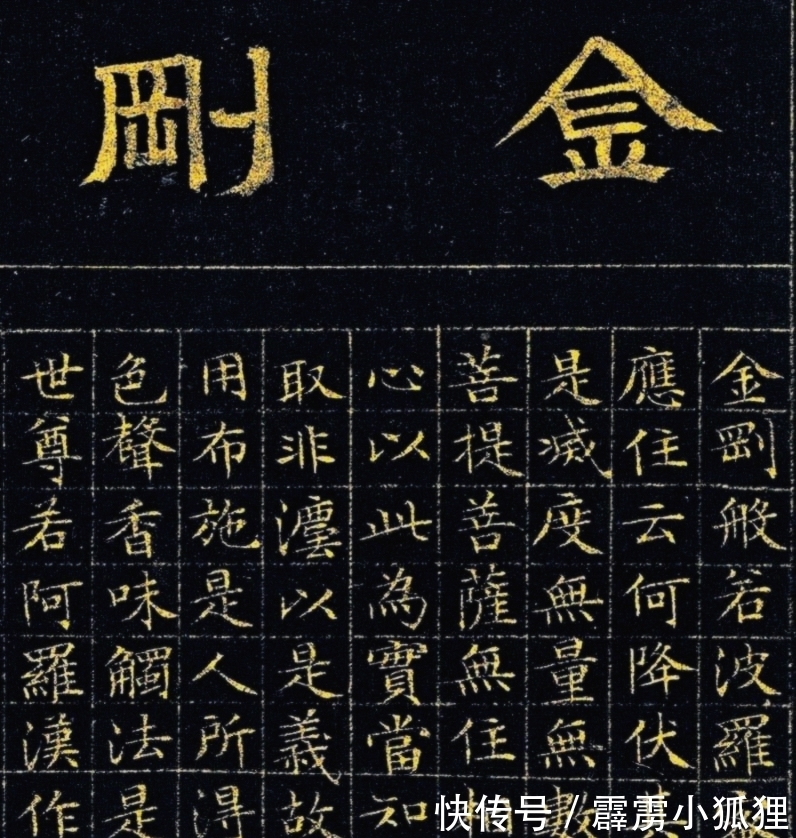 金剛
金剛般若波羅
應住云何降伏
是滅度無量無數
菩提菩薩無住相
心以此為實當知
取非灋以是義故
用布施是人所得
色聲香味觸法是
世尊若阿羅漢作
快传号/霹雳小狐狸